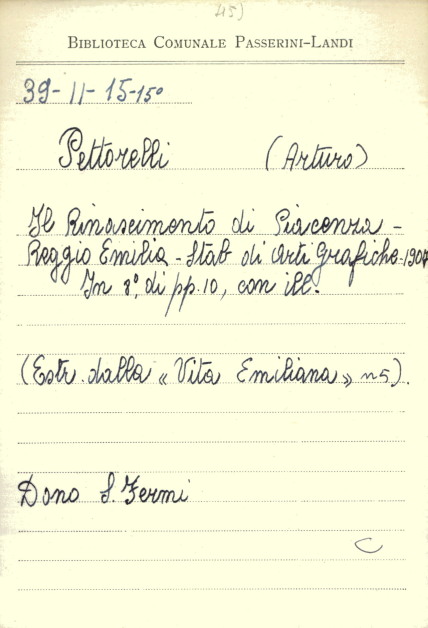 45)
BIBLIOTECA COMUNALE PASSERINI-LANDI
39-11-15-15°
Pettorelli (Arturo)
Il Rinascimento di Piacenza -
Reggio Emilia - Stab di Arti Grafiche - 1907
In 8°, di pp. 10, con ill.
(Estr. dalla « Vita Emiliana » n 5).
Dono S. Fermi
C